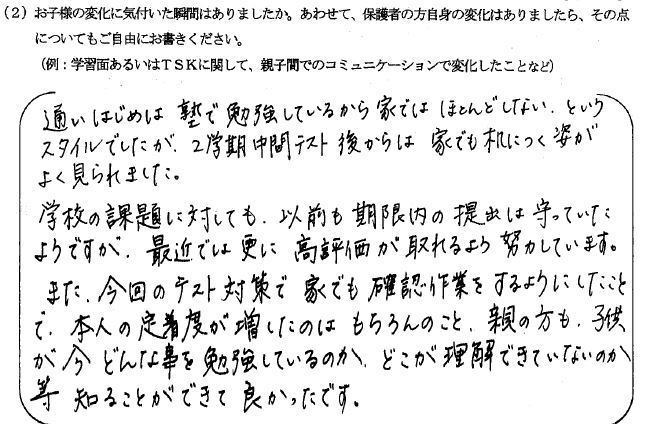 (2) お子様の変化に気付いた瞬間はありましたか。あわせて、保護者の方自身の変化はありましたら、その点
についてもご自由にお書きください。
(例:学習面あるいはTSKに関して、親子間でのコミュニケーションで変化したことなど)
通いはじめは 塾で勉強しているから家では ほとんどしない、という
スタイルでしたが、2学期中間テスト後からは 家でも机につく姿が
よく見られました。
学校の課題に対しても、以前も期限内の提出は守っていた
ようですが、最近では更に高評価が取れるよう努力しています。
また、今回のテスト対策で家でも確認作業をするようにしたこと
で、本人の定着度が増したのはもちろんのこと、親の方も、子供
が今どんな事を勉強しているのか、どこが理解できていないのか
等 知ることができて良かったです。